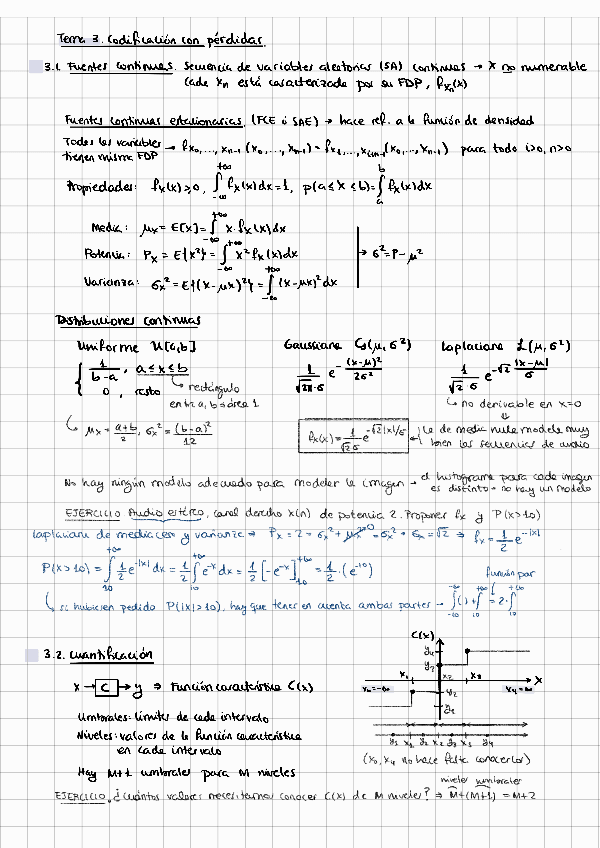 Tema 3. Codificación con pérdidas.
3.1. Fuentes continuas. Secuencia de variables aleatorias (SA) continuas → X no numerable
cada Xn está caracterizada por su FDP, fXn(x)
Fuentes continuas estacionarias. (FCE ó SAE) → hace ref. a la función de densidad
Todas las variables tienen misma FDP → fX0,...,Xn-1 (x0,...,xn-1) = fXi,...,Xi+n-1(x0,...,xn-1) para todo i>0, n>0
Propiedades: fx(x) ≥ 0, ∫_{-∞}^{+∞} fx(x)dx = 1, p(a ≤ X ≤ b) = ∫_a^b fx(x)dx
Media: μx = E[X] = ∫_{-∞}^{+∞} x·fx(x)dx
Potencia: Px = E{X²} = ∫_{-∞}^{+∞} x² fx(x)dx → σ² = P - μ²
Varianza: σx² = E{(X-μx)²} = ∫_{-∞}^{+∞} (x-μx)² dx
Distribuciones continuas
Uniforme U[a,b] Gaussiana G(μ,σ²) Laplaciana L(μ,σ²)
{ 1/(b-a), a ≤ x ≤ b 1/(√2π·σ) e^{-(x-μ)²/2σ²} 1/(√2·σ) e^{-√2 |x-μ|/σ}
0, resto → rectángulo entre a, b → área 1
→ no derivable en x=0
⇓
μx = (a+b)/2, σx² = (b-a)²/12 fx(x) = 1/(√2σ) e^{-√2|x|/σ} ← La de media nula modela muy bien las secuencias de audio
No hay ningún modelo adecuado para modelar la imagen → el histograma para cada imagen es distinto → no hay un modelo
EJERCICIO Audio estéreo, canal derecho x(n) de potencia 2. Proponer fx y P(X>10)
Laplaciana de media cero y varianza → Px = 2 = σx² + μx² = σx² → σx = √2 ⇒ fx = 1/2 e^{-|x|}
P(X>10) = ∫_{10}^{+∞} 1/2 e^{-|x|} dx = 1/2 ∫_{10}^{+∞} e^{-x} dx = 1/2 [-e^{-x}]_{10}^{+∞} = 1/2·(e^{-10})
función par
si hubiesen pedido P(|X|>10), hay que tener en cuenta ambas partes → ∫_{-∞}^{-10}() + ∫_{10}^{+∞} = 2·∫_{10}^{+∞}
3.2. Cuantificación
x → C → y ⇒ Función característica C(x)
Umbrales: límites de cada intervalo
Niveles: valores de la función característica
en cada intervalo
Hay M+1 umbrales para M niveles
C(x)
y4
y3
x1 x2 x3 x
x0=-∞ y2 x4=∞
y1
y1 x1 y2 x2 y3 x3 y4
(x0, x4 no hace falta conocerlos)
niveles umbrales
EJERCICIO. ¿Cuántos valores necesitamos conocer C(x) de M niveles? ⇒ M+(M+1) = M+2